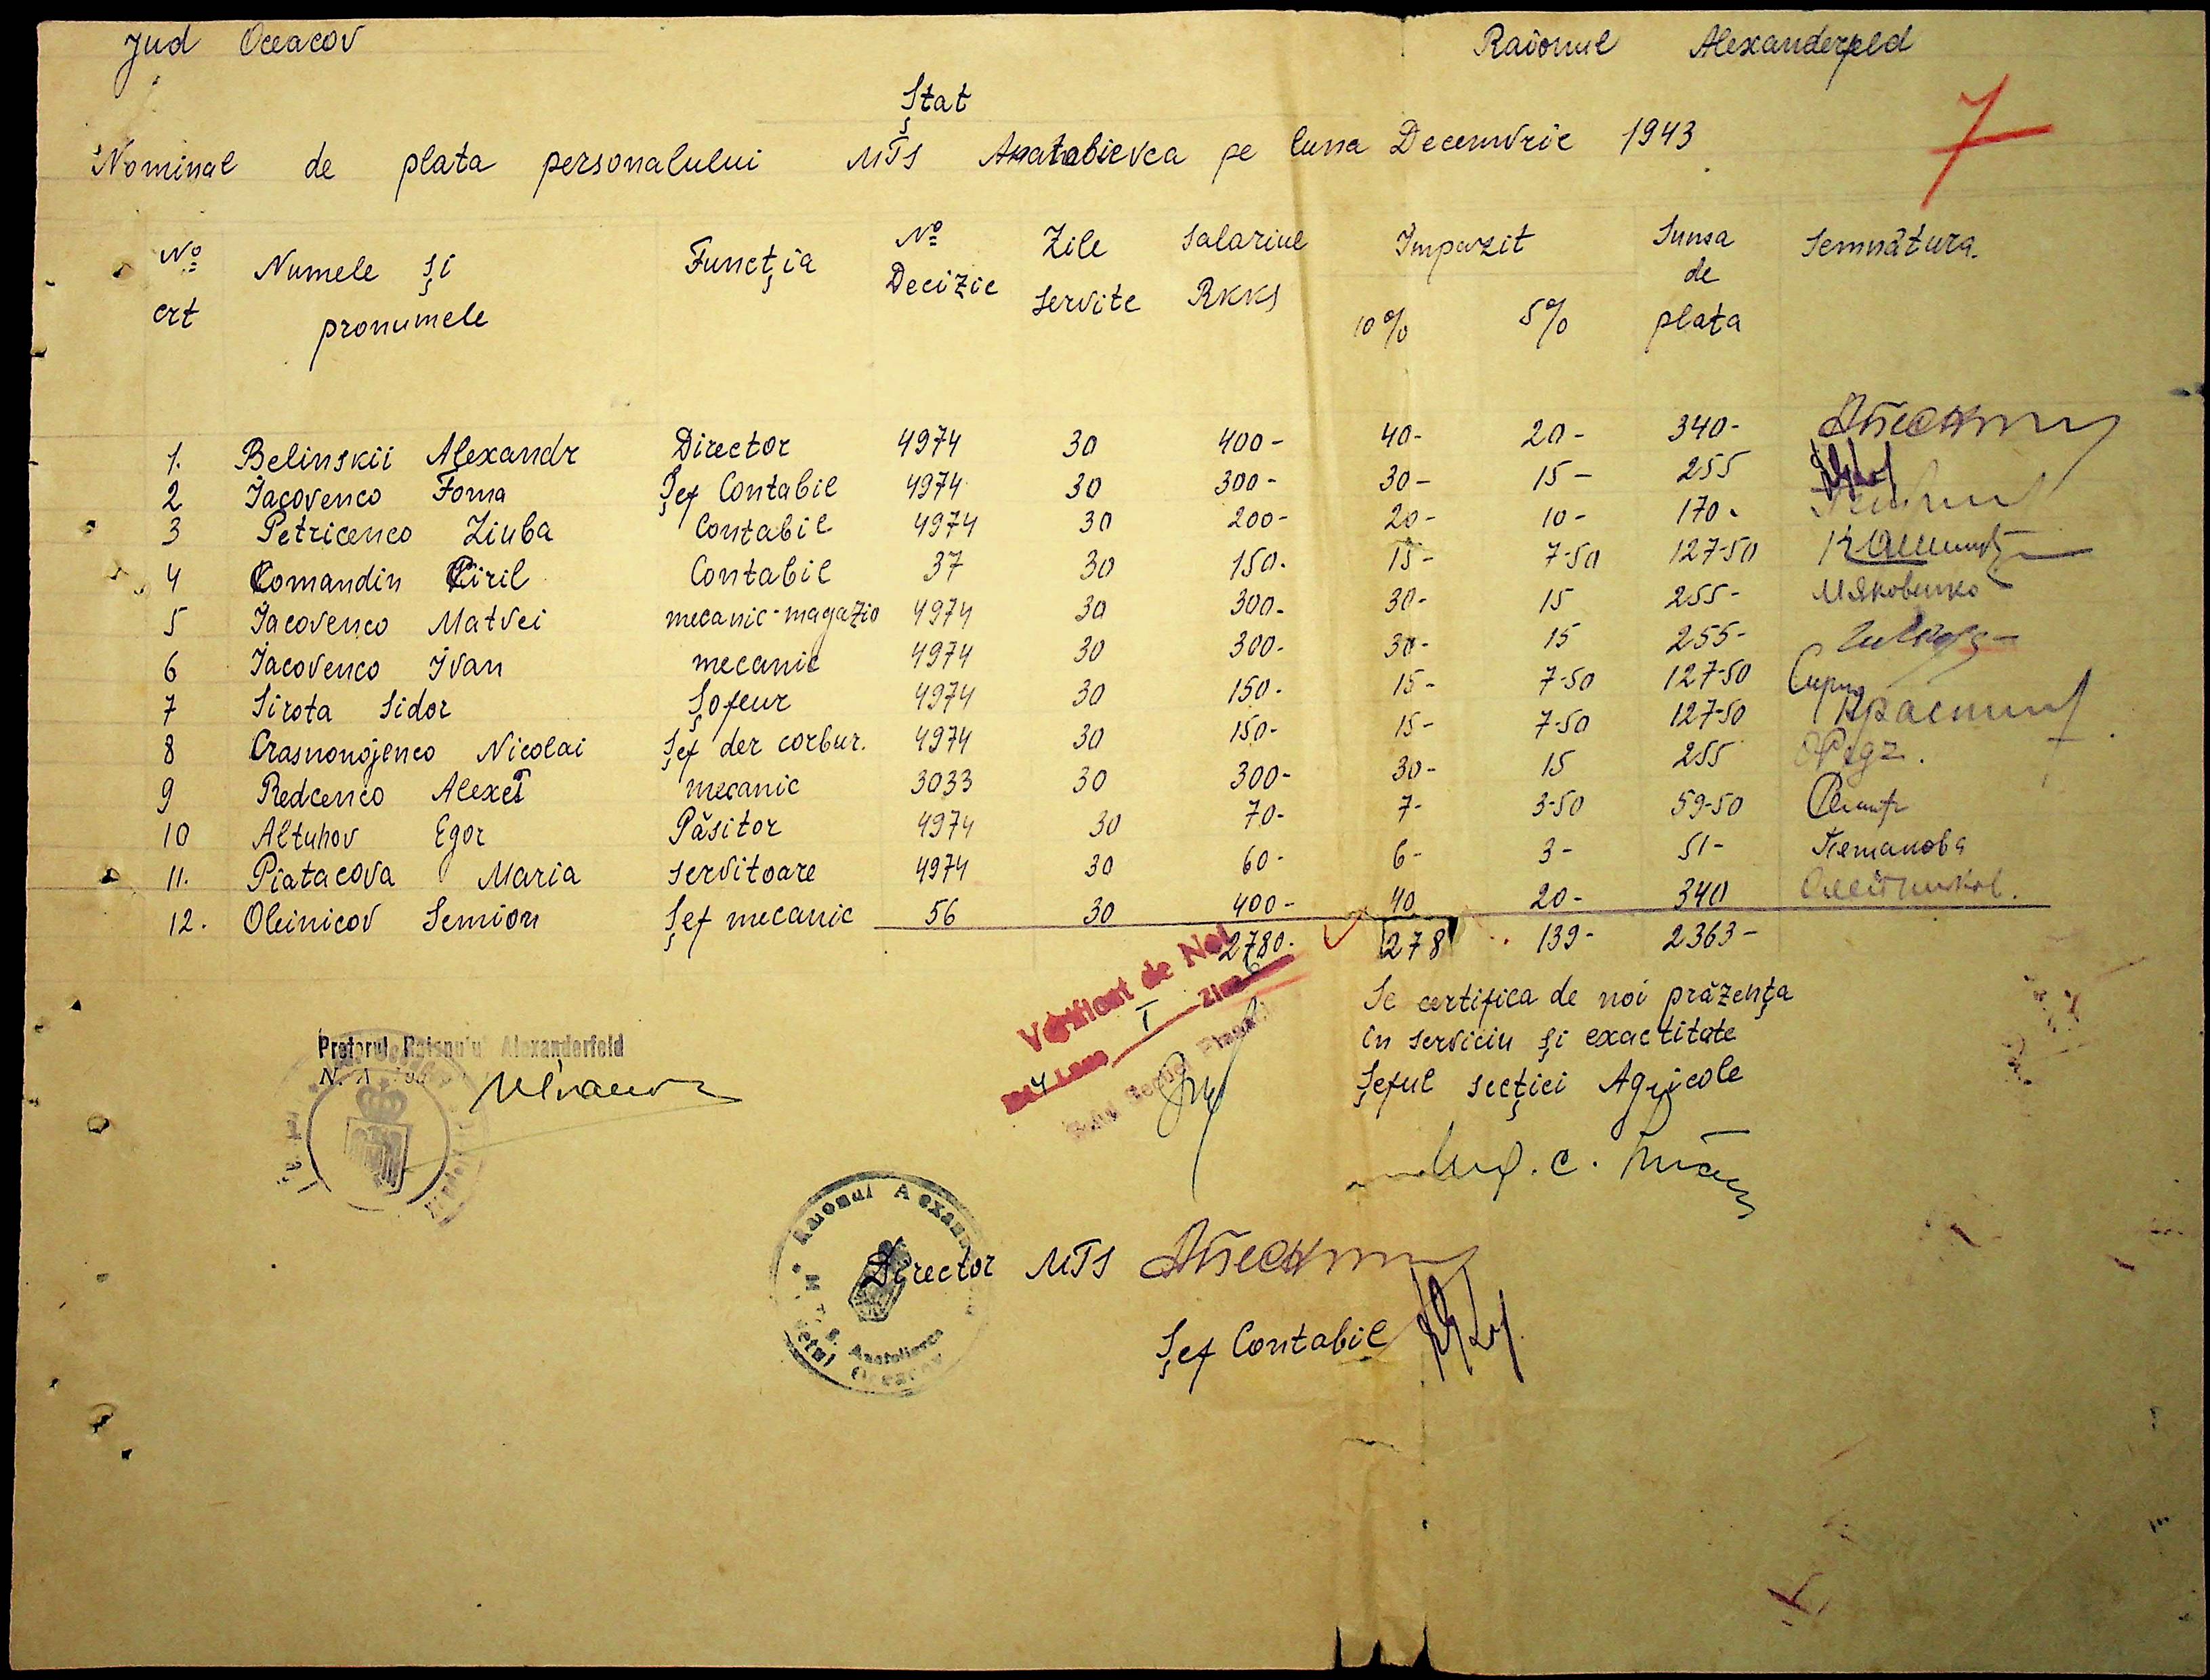 Jud Oceacov Raionul Alexanderfeld
7
Ștat
Nominal de plata personalului MTS Anatolievca pe luna Decemvrie 1943
№ crt Numele și pronumele Funcția № Decizie Zile servite Salariul RKKS Impozit 10% 5% Suma de plata Semnătura
1. Belinskii Alexandr Director 4974 30 400- 40- 20- 340-
2 Iacovenco Foma Șef Contabil 4974 30 300- 30- 15- 255
3 Petricenco Liuba Contabil 4974 30 200- 20- 10- 170-
4 Comandin Chiril Contabil 37 30 150- 15- 7-50 127-50
5 Iacovenco Matvei mecanic-magazio 4974 30 300- 30- 15 255- МЯковенко
6 Iacovenco Ivan mecanic 4974 30 300- 30- 15 255-
7 Sirota Sidor Șofeur 4974 30 150- 15- 7-50 127-50
8 Crasnonojenco Nicolai Șef der corbur. 4974 30 150- 15- 7-50 127-50
9 Redcenco Alexei mecanic 3033 30 300- 30- 15 255
10 Altuhov Egor Păsitor 4974 30 70- 7- 3-50 59-50
11. Piatacova Maria servitoare 4974 30 60- 6- 3- 51-
12. Oleinicov Semion Șef mecanic 56 30 400- 40 20- 340 Олейников.
2780- 278 139- 2363-
Verificat de Noi
4 Luna I Ziua
Se certifica de noi prăzența
in serviciu și exactitate
Șeful secției Agricole
Ing. C.
Pretorul Raionului Alexanderfeld
Raionul Alexan
M.T.S. Anatolievca
Oceacov
Director MTS
Șef Contabil